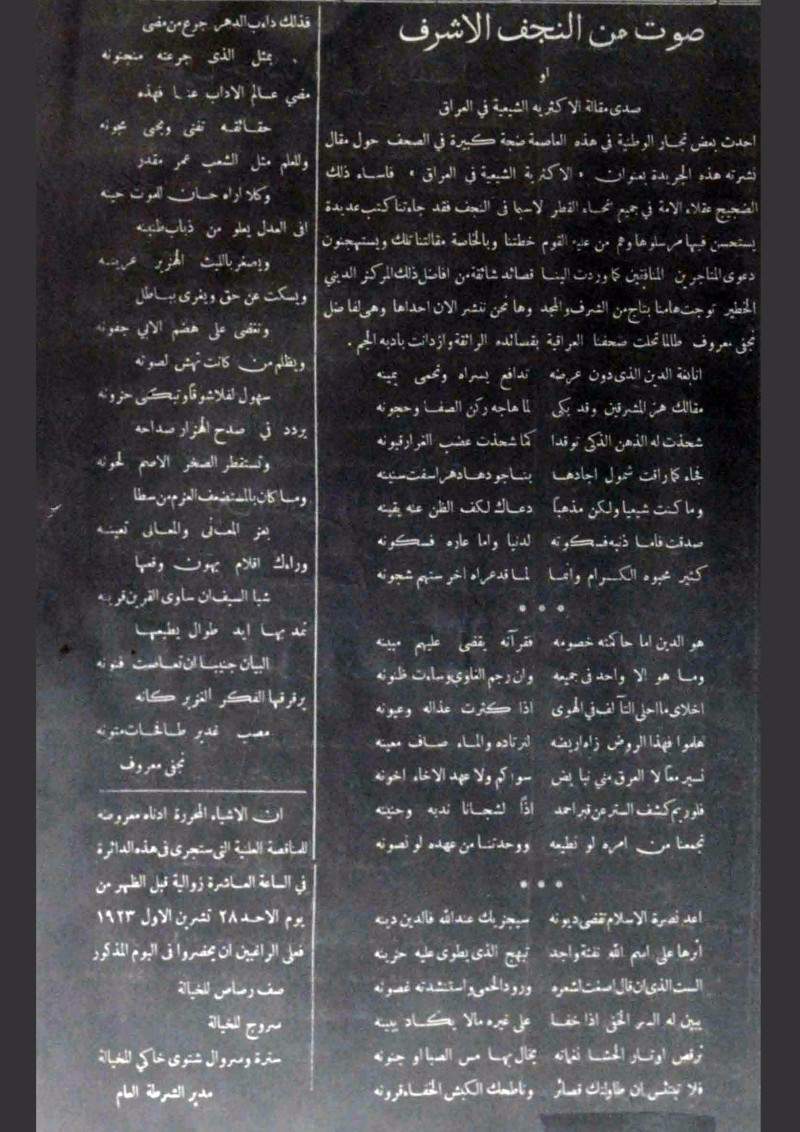 صوت من النجف الاشرف
او
صدى مقالة الاكثريه الشيعية في العراق
احدث بعض تجار الوطنية في هذه العاصمة ضجة كبيرة في الصحف حول مقال
نشرته هذه الجريدة بعنوان « الاكثرية الشيعية في العراق » فاساء ذلك
الضجيج عقلاء الامة في جميع انحاء القطر لاسيما فى النجف فقد جاءتنا كتب عديدة
يستحسن فيها مرسلوها وهم من علية القوم خطتنا وبالخاصة مقالتنا تلك ويستهجنون
دعوى المتاجرين المنافقين كما وردت الينا قصائد شائقة من افاضل ذلك المركز الديني
الخطير توجت هامنا بتاج من الشرف والمجد وها نحن ننشر الان احداها وهى لفاضل
نجفي معروف طالما تحلت صحفنا العراقية بقصائده الرائقة وازدانت بادبه الجم .
انابغة الدين الذى دون عرضه ندافع يسراه وتحمى يمينه
مقالك هز المشرقين وقد بكى لما هاجه ركن الصفا وحجونه
شحذت له الذهن الذكي توقدا كما شحذت عضب الغرار قيونه
فجاء كما رافت شمول اجادها دهر اسفت سنينه
وما كنت شيعيا ولكن مذهبا دعاك لكف الظن عنه يقينه
صدقت فاما ذنبه فسكوته لدنيا واما عاره فسكونه
كثير محبوه الكرام وانما لما قد عراه اخرستهم شجونه
* * *
هو الدين اما حاكمته خصومه فقرآنه يقضى عليهم مبينه
وما هو الا واحد فى جميعه وان رجم الغاوي وساءت ظنونه
اخلاى ما احلى التآلف في الهوى اذا كثرت عذاله وعيونه
هلموا فهذا الروض زاه اريضه لنرتاده والماء صاف معينه
نسير معاً لا العرق مني نابض سواكم ولا عهد الاخاء اخونه
فلو ريم كشف الستر عن قبر احمد اذاً لشجانا ندبه وحنينه
تجمعنا من امره لو نطيعه ووحدتنا من عهده لو نصونه
* * *
اعد نصرة الاسلام تقضى ديونه سيجزيك عند الله فالدين دينه
أثرها على اسم الله نفثة واجد تبهج الذى يطوى عليه حزينه
الست الذى ان قال اصغت لشعره ورود الحمى واستنشدته غصونه
يبين له السر الخفي اذا خفا على غيره مالا يكاد يبينه
ترقص اوتار الحشا نغماته يخال بها مس الصبا او جنونه
فلا تبتئس ان طاولتك قصائر وناطحك الكبش الخفاء قرونه
فذلك داءب الدهر جرع من مضى
بمثل الذى جرعته منجنونه
مضي عالم الاداب عنا فهذه
حقائقه تفنى ويحيى مجونه
وللعلم مثل الشعب عمر مقدر
وكلا اراه حان للموت حينه
افى العدل يعلو من ذباب طنينه
ويصغر بالليث الهزبر عرينه
ويسكت عن حق ويغرى بباطل
وتغضى على هضم الابي جفونه
ويظلم من كانت تهش لصوته
سهول الفلا شوقا وتبكى حزونه
يردد في صدح الهزار صداحه
وتستقطر الصخر الاصم لحونه
وما كان بالمستضعف العزم من سطا
بعز المعانى والمعالى تعينه
وراءك اقلام يهون وقعها
شبا السيف ان ساوى القرين قرينه
تمد بها ايد طوال يطيعها
البيان جنيبا ان تعاصت فنونه
يرقرقها الفكر الغزير كانه
مصب غدير طافحات متونه
نجفي معروف
ان الاشياء المحررة ادناه معروضه
للمناقصة العلنية التى ستجرى فى هذه الدائرة
في الساعة العاشرة زوالية قبل الظهر من
يوم الاحد ٢٨ تشرين الاول ١٩٢٣
فعلى الراغبين ان يحضروا فى اليوم المذكور
صف رصاص للخيالة
سروج للخيالة
سترة وسروال شتوى خاكي للخيالة
مدير الشرطة العام